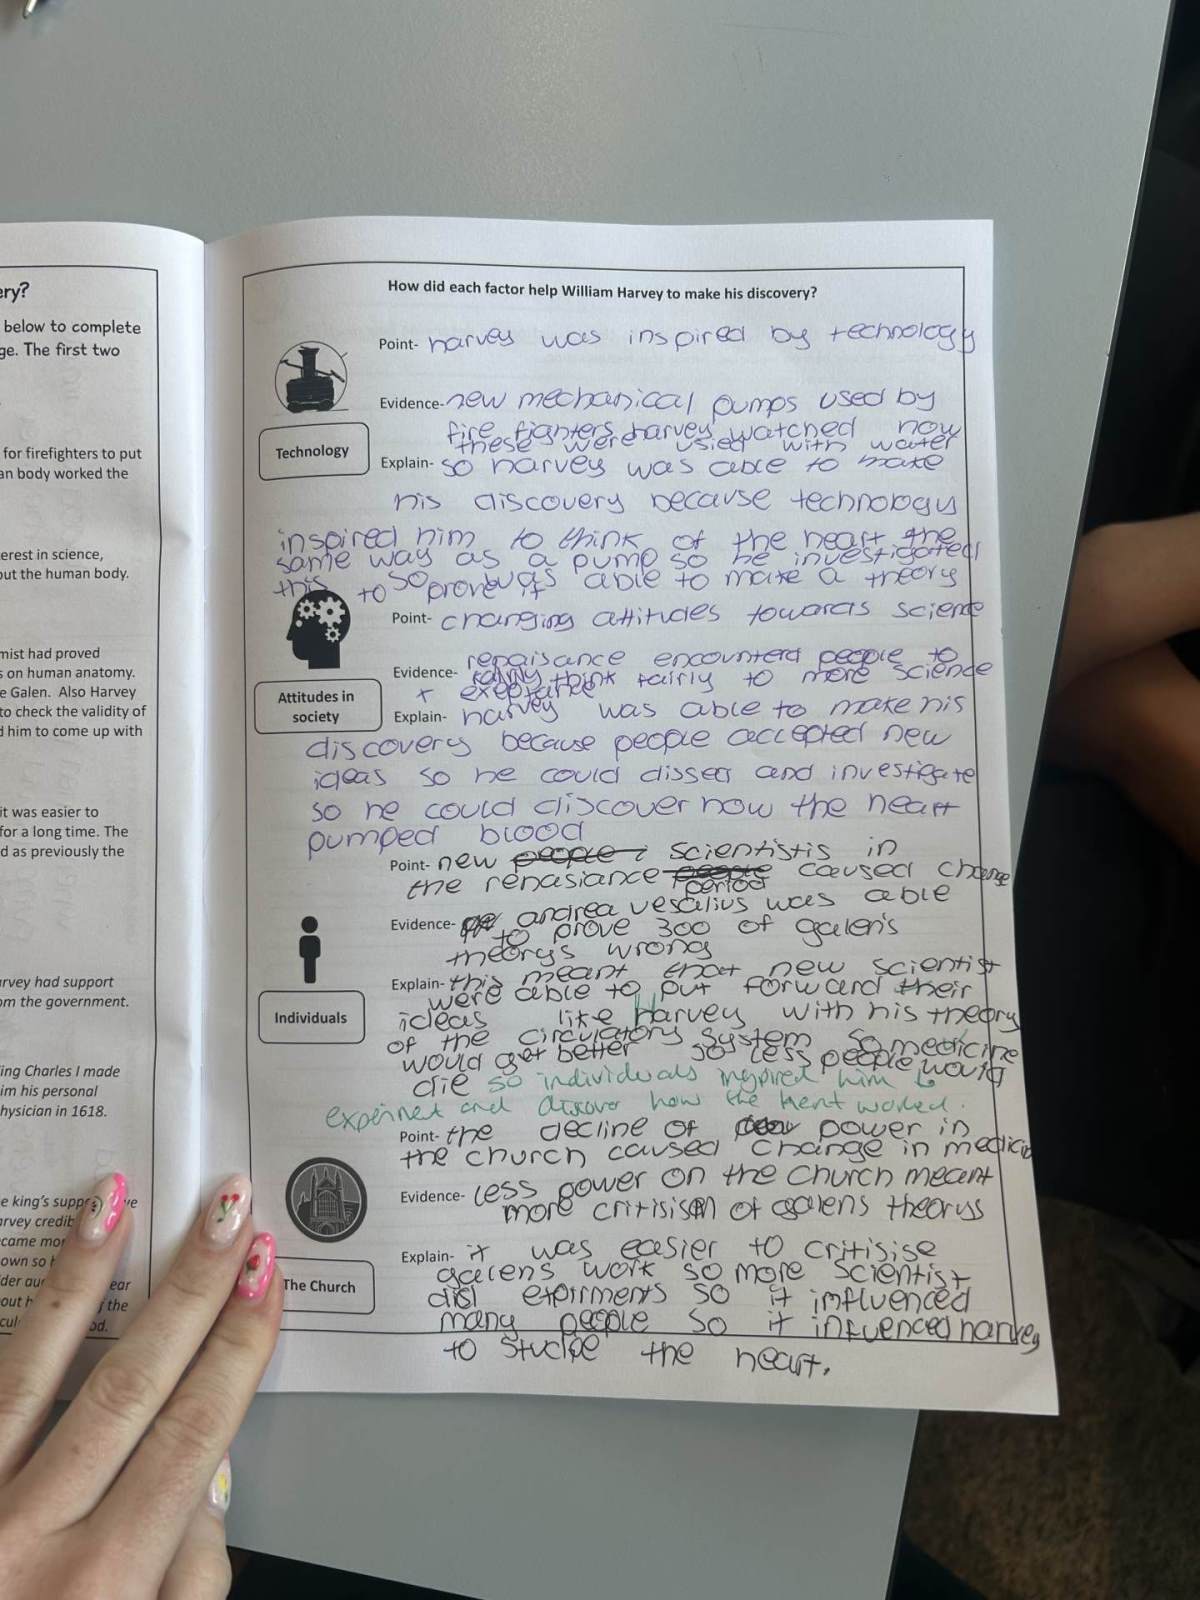 ery?
below to complete
ge. The first two
for firefighters to put
an body worked the
erest in science,
out the human body.
mist had proved
s on human anatomy.
e Galen. Also Harvey
to check the validity of
d him to come up with
it was easier to
for a long time. The
d as previously the
arvey had support
om the government.
ing Charles I made
im his personal
hysician in 1618.
e king's supp ve
arvey credib
came mor
own so h
der au ear
out h of the
cul od.
How did each factor help William Harvey to make his discovery?
Point- harvey was inspired by technology
Evidence- new mechanical pumps used by
fire fighters harvey watched how
these were usied with water
Technology
Explain- so harvey was able to make
his discovery because technology
inspired him to think of the heart the
same way as a pump so he investigated
this to prove it so was able to make a theory
Point- changing attitudes towards science
Evidence- renaisance encounterd people to
think fairly to more science
+ exeptance
Attitudes in
society
Explain- harvey was able to make his
discovery because people accepted new
ideas so he could dissect and investigate
so he could discover how the heart
pumped blood
Point- new people scientistis in
the renasiance people period caused change
Evidence- andrea vesalius was able
to prove 300 of galen's
theorys wrong
Explain- this meant that new scientist
were able to put forward their
Individuals
ideas like Harvey with his theory
of the circulatory system so medicine
would get better so less people would
die so individuals inspired him to
experiment and discover how the heart worked.
Point- the decline of power in
the church caused change in medicin
Evidence- less power on the church meant
more critisism of galens theoryss
Explain- it was easier to critisise
galens work so more scientist
The Church
did expirments so it imfluenced
many people so it influenced harvey
to studie the heart.